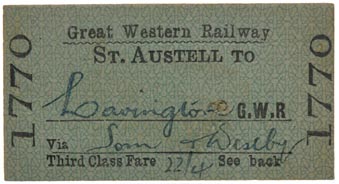 Great Western Railway
ST. AUSTELL TO
1770
Lavington G.W.R
Via Westbury
Third Class Fare 22/4 See back
1770